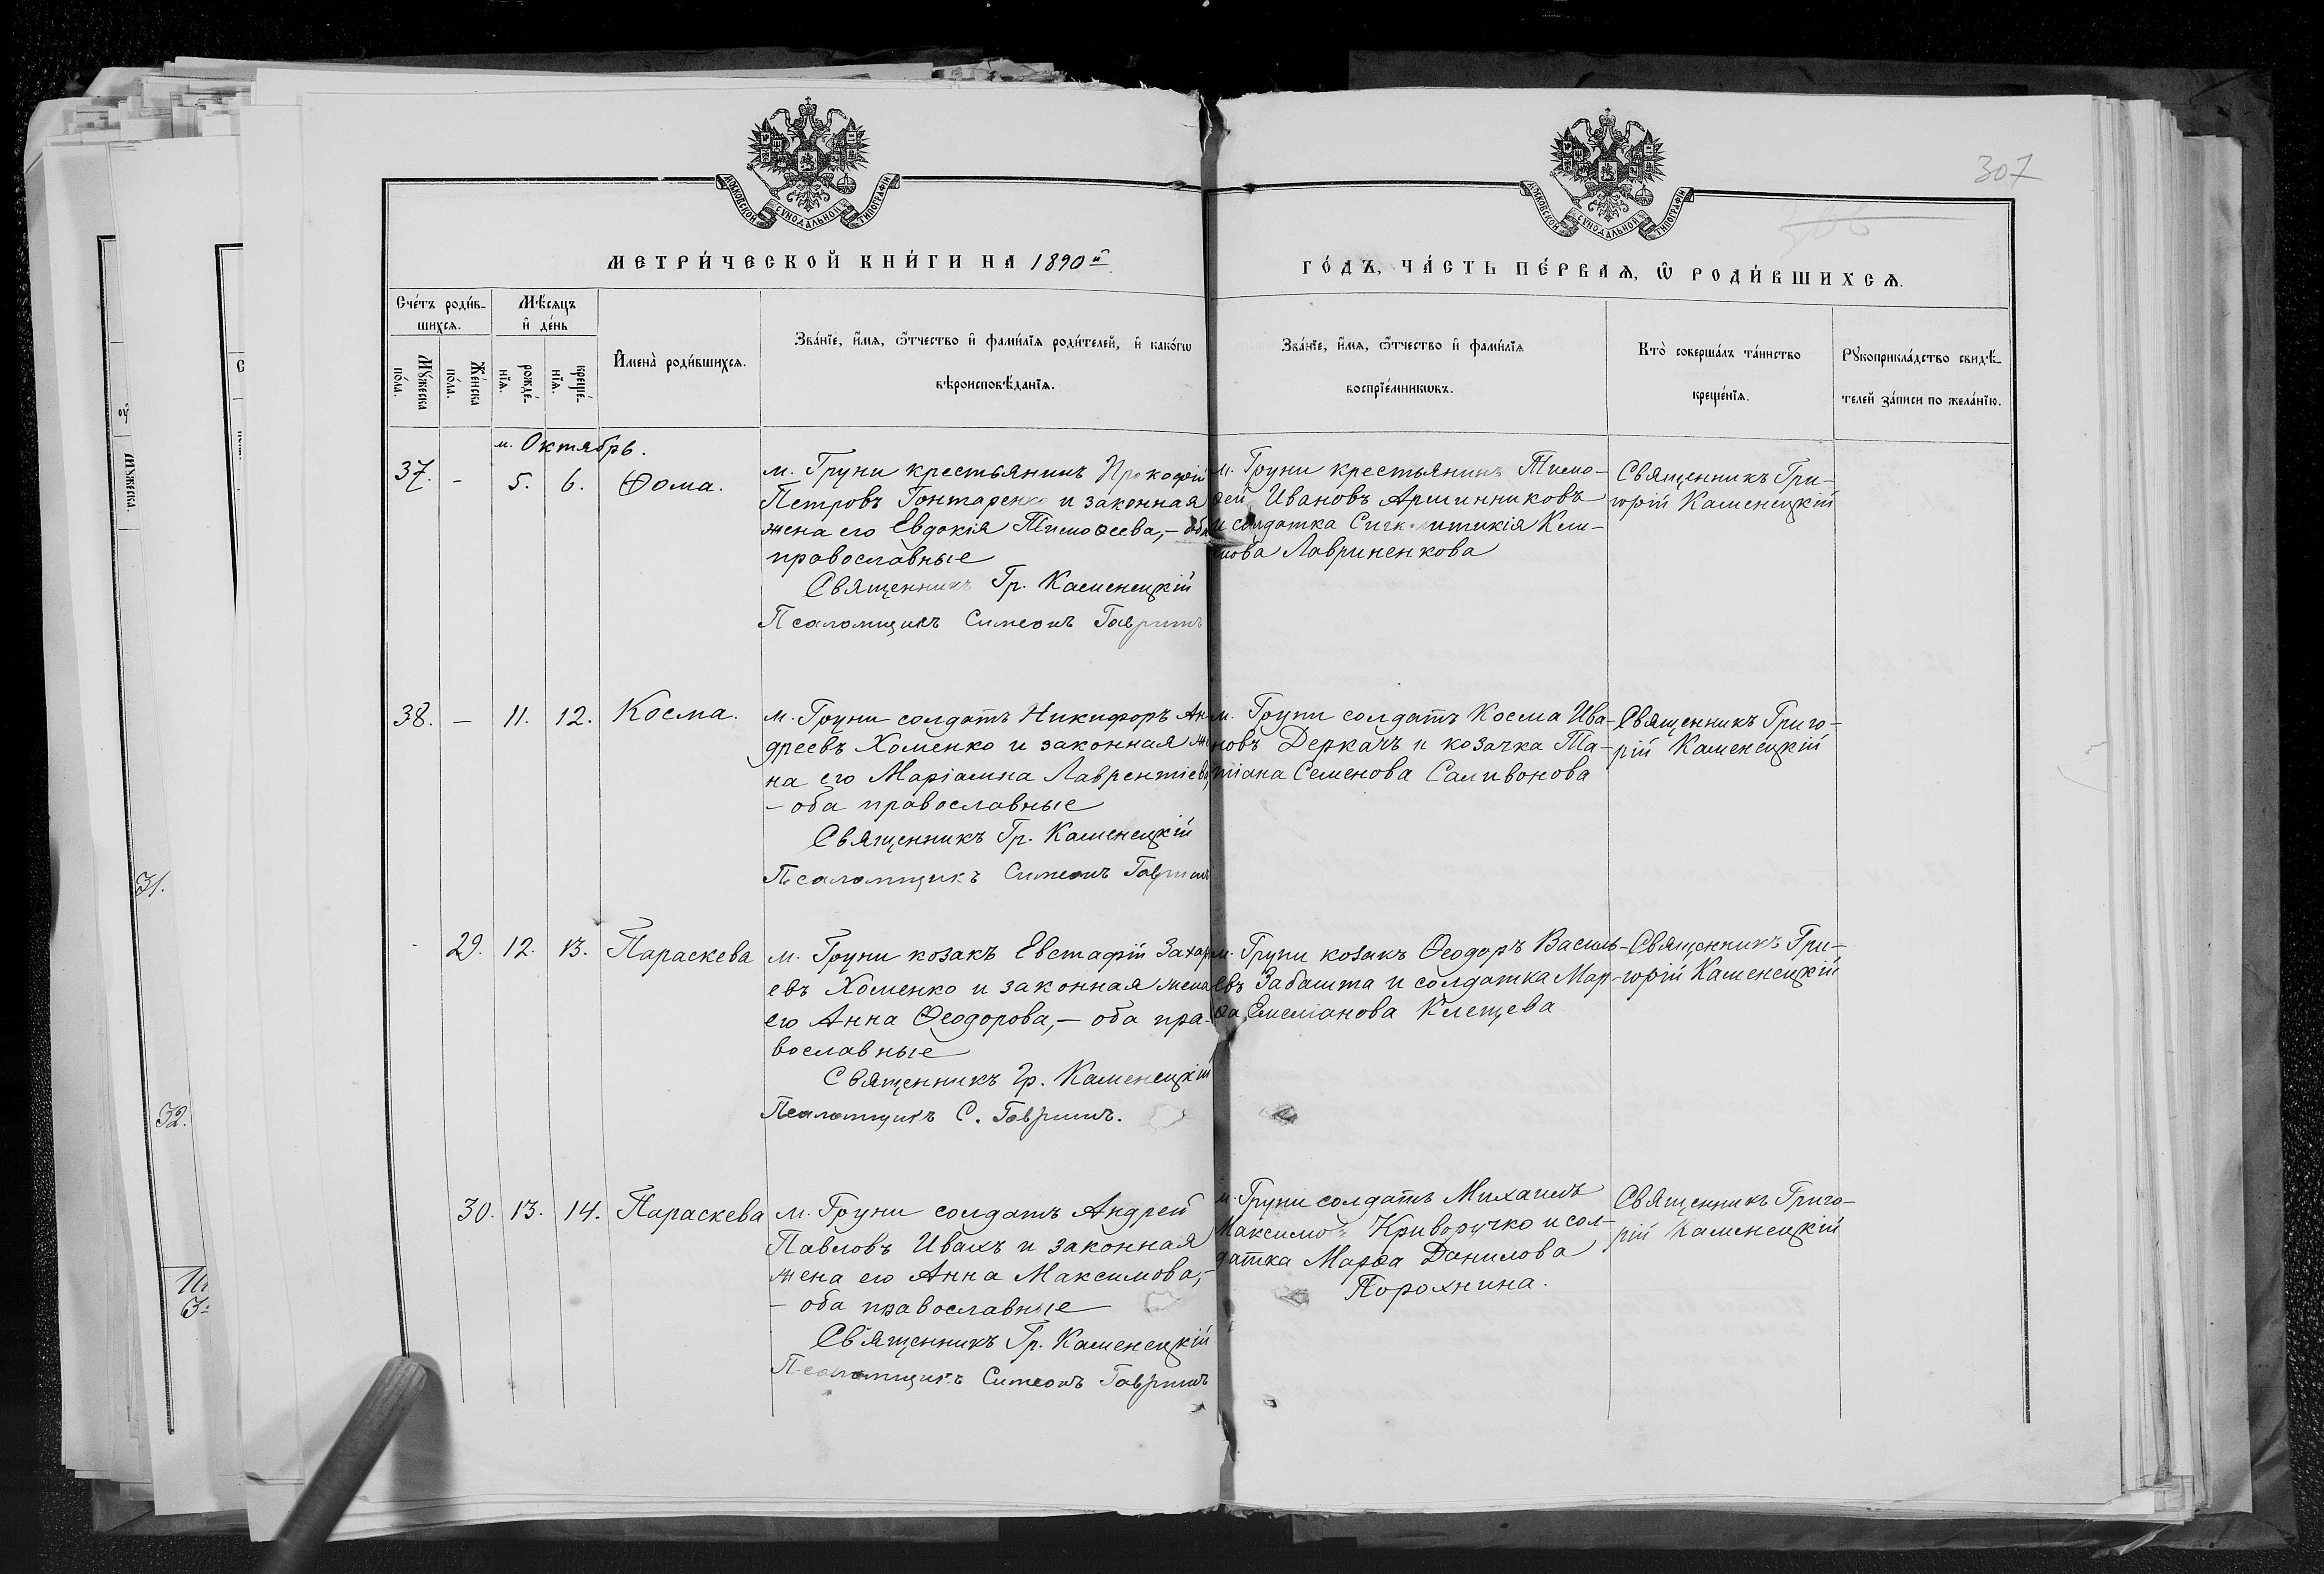 307
306
МОСКОВСКОЙ СУНОДАЛЬНОЙ ТИПОГРАФІИ
МОСКОВСКОЙ СУНОДАЛЬНОЙ ТИПОГРАФІИ
МЕТРИ́ЧЕСКОЙ КНИ́ГИ НА 1890й
ГО́ДЪ, ЧА́СТЬ ПЕ́РВАѦ, Ѿ РОДИ́ВШИХСѦ.
Сче́тъ роди́в-
шихсѧ.
Мѣ́сѧцъ
и҆ де́нь
Мꙋ́жеска
по́ла.
Же́нска
по́ла.
рожде́-
нїѧ.
креще́-
нїѧ.
И҆мена̀ роди́вшихсѧ.
Зва́нїе, и҆́мѧ, ѻ҆́тчество и҆ фами́лїѧ роди́телей, и҆ како́гѡ
вѣроисповѣ́данїѧ.
Зва́нїе, и҆́мѧ, ѻ҆́тчество и҆ фами́лїѧ
воспрїе́мникѡвъ.
Кто̀ соверша́лъ та́инство
креще́нїѧ.
Рꙋкоприкла́дство свидѣ́-
телей за́писи по жела́нїю.
м. Октябрь.
37. - 5. 6. Ѳома.
м. Груни крестьянинъ Прокофій
Петровъ Гонтаренко и законная
жена его Евдокія Тимоѳеева,- оба
православные
Священникъ Гр. Каменецкій
Псаломщикъ Симеонъ Гавришъ
м. Груни крестьянинъ Тимо-
ѳей Ивановъ Аршинниковъ
и солдатка Кли-
мова Лавриненкова
Священникъ Гри-
горій Каменецкій
38. - 11. 12. Косма.
м. Груни солдатъ Никифоръ Ан-
дреевъ Хоменко и законная же
на его Маріамна Лаврентіева,
- оба православные
Священникъ Гр. Каменецкій
Псаломщикъ Симеонъ Гавришъ
м. Груни солдатъ Косма Ива-
новъ Деркачъ и козачка Та-
тіана Семенова Саливонова
Священникъ Григо-
рій Каменецкій
29. 12. 13. Параскева
м. Груни козакъ Евстафій Захарі
евъ Хоменко и законная жена
его Анна Ѳеодорова,- оба пра-
вославные
Священникъ Гр. Каменецкій
Псаломщикъ С. Гавришъ.
м. Груни козакъ Ѳеодоръ Василь-
евъ Забашта и солдатка Мар-
ѳа Емельянова Клещева
Священникъ Гри-
горій Каменецкій
30. 13. 14. Параскева
м. Груни солдатъ Андрей
Павловъ Ивахъ и законная
жена его Анна Максимова,-
- оба православные
Священникъ Гр. Каменецкій
Псаломщикъ Симеонъ Гавришъ
м. Груни солдатъ Михаилъ
Максимовъ Криворучко и сол-
датка Марѳа Данилова
Порохнина.
Священникъ Григо-
рій Каменецкій
Мꙋ́жеска
31.
32.